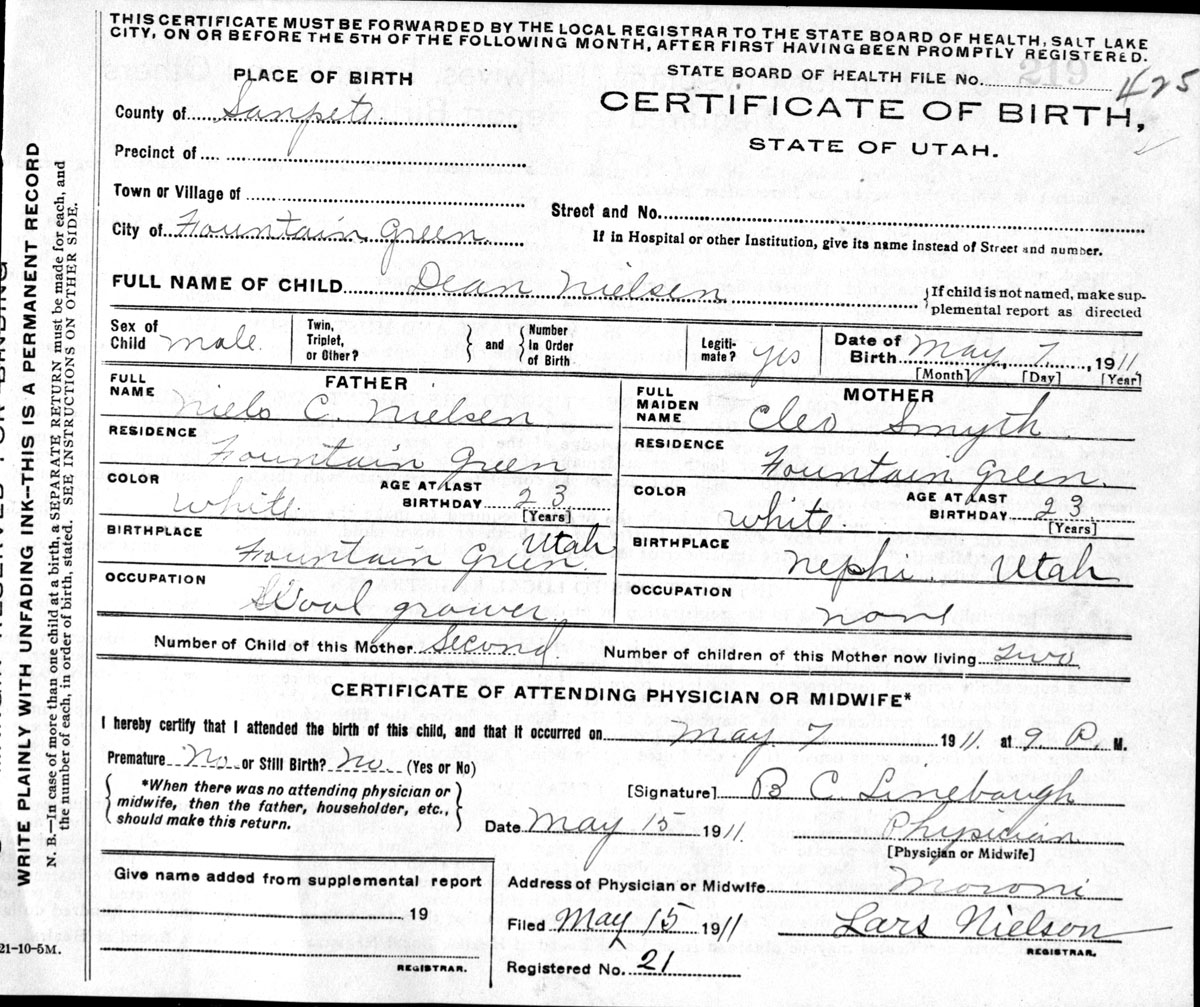 THIS CERTIFICATE MUST BE FORWARDED BY THE LOCAL REGISTRAR TO THE STATE BOARD OF HEALTH, SALT LAKE
CITY, ON OR BEFORE THE 5TH OF THE FOLLOWING MONTH, AFTER FIRST HAVING BEEN PROMPTLY REGISTERED.
STATE BOARD OF HEALTH FILE No. 219 425
PLACE OF BIRTH
CERTIFICATE OF BIRTH,
STATE OF UTAH.
County of Sanpete
Precinct of
Town or Village of
Street and No.
City of Fountain Green
If in Hospital or other Institution, give its name instead of Street and number.
FULL NAME OF CHILD Dean Nielsen
If child is not named, make sup-
plemental report as directed
Sex of Child male. Twin, Triplet, or Other? and Number In Order of Birth Legiti-mate? yes Date of Birth May 7, 1911.
[Month] [Day] [Year]
FATHER
FULL NAME Niels C. Nielsen
RESIDENCE Fountain Green
COLOR white. AGE AT LAST BIRTHDAY 23
[Years]
BIRTHPLACE Fountain Green. Utah
OCCUPATION Wool grower.
MOTHER
FULL MAIDEN NAME Cleo Smyth.
RESIDENCE Fountain Green.
COLOR white. AGE AT LAST BIRTHDAY 23
[Years]
BIRTHPLACE Nephi. Utah
OCCUPATION none
Number of Child of this Mother Second. Number of children of this Mother now living Two
CERTIFICATE OF ATTENDING PHYSICIAN OR MIDWIFE*
I hereby certify that I attended the birth of this child, and that it occurred on May. 7 1911. at 9 P. M.
Premature No or Still Birth? No. (Yes or No)
*When there was no attending physician or
midwife, then the father, householder, etc.,
should make this return.
[Signature] B C Linebaugh
Date May 15 1911. Physician
[Physician or Midwife]
Give name added from supplemental report
19
REGISTRAR.
Address of Physician or Midwife Moroni
Filed May 15 1911 Lars Nielson
REGISTRAR.
Registered No. 21
21-10-5M.
WRITE PLAINLY WITH UNFADING INK--THIS IS A PERMANENT RECORD
N. B.—In case of more than one child at a birth, a SEPARATE RETURN must be made for each, and
the number of each, in order of birth, stated. SEE INSTRUCTIONS ON OTHER SIDE.